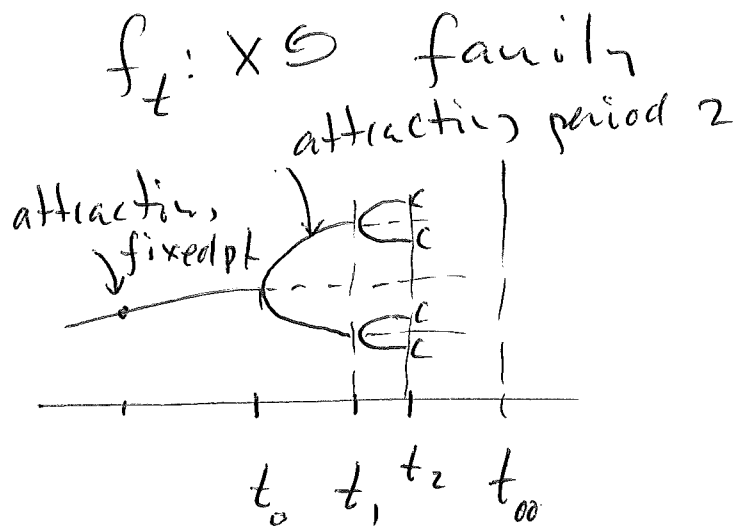 f_t : X ↺ family
attracting period 2
attracting
fixed pt
c
c
c
c
t_0 t_1 t_2 t_∞